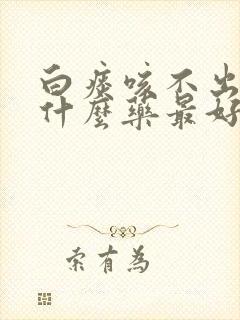 白痰咳不出
什麼藥最好
索有為